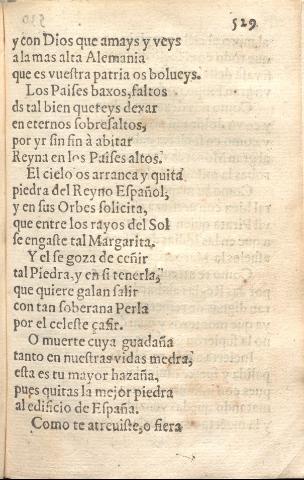 529
y con Dios que amays y veys
a la mas alta Alemania
que es vuestra patria os bolueys.
Los Paises baxos, faltos
ds tal bien quereys dexar
en eternos sobresaltos,
por yr sin fin à abitar
Reyna en los Paises altos.
El cielo os arranca y quita
piedra del Reyno Español,
y en sus Orbes solicita,
que entre los rayos del Sol
se engaste tal Margarita.
Y el se goza de ceñir
tal Piedra, y en si tenerla,
que quiere galan salir
con tan soberana Perla
por el celeste çafir.
O muerte cuya guadaña
tanto en nuestras vidas medra,
esta es tu mayor hazaña,
pues quitas la mejor piedra
al edificio de España.
Como te atreuiste, o fiera